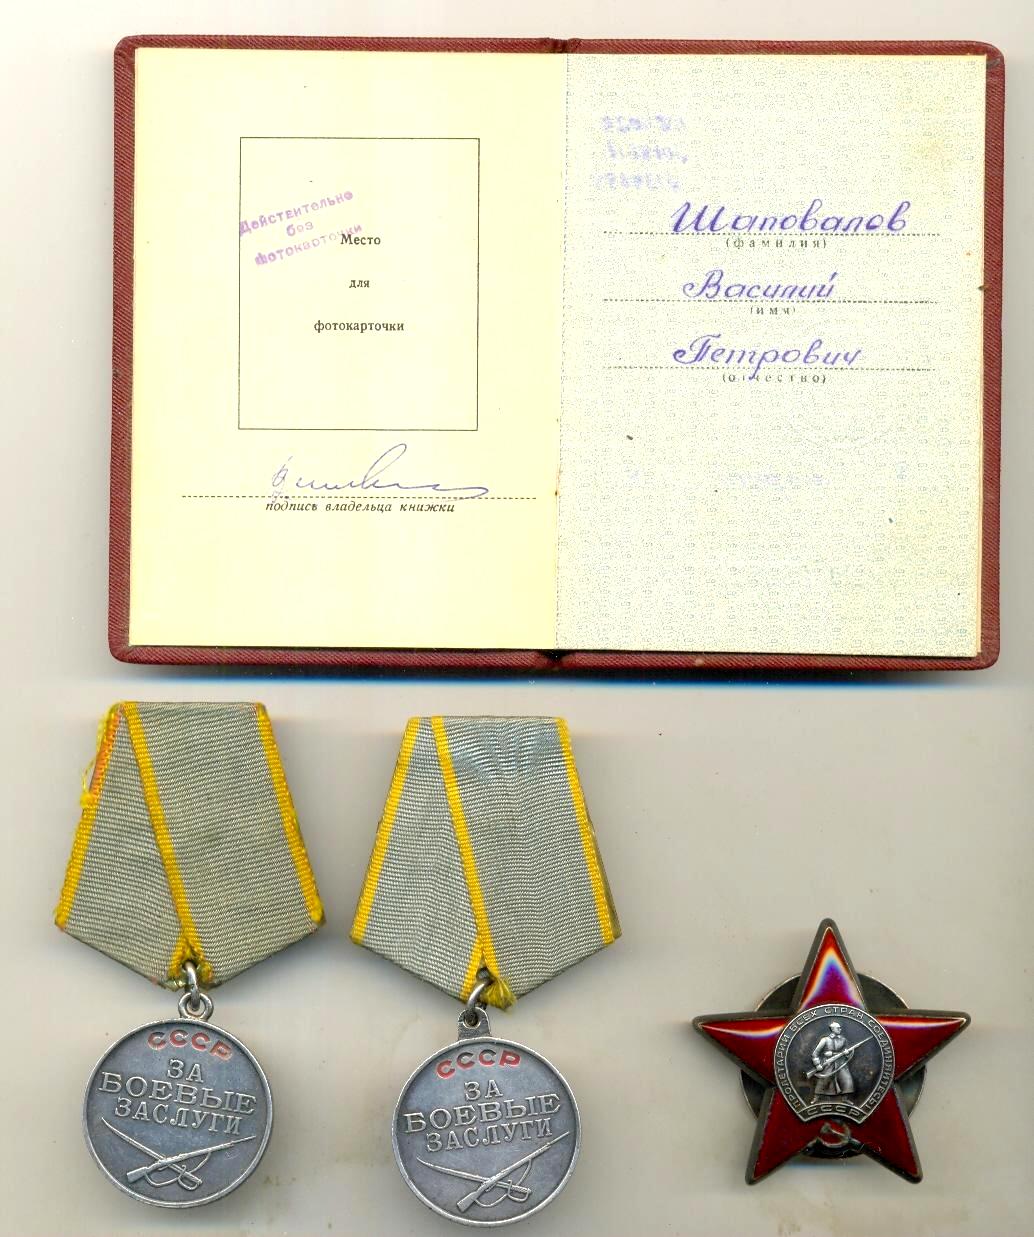 Действительно
без
фотокарточки
Место
для
фотокарточки
подпись владельца книжки
Шаповалов
(фамилия)
Василий
(имя)
Петрович
(отчество)
СССР
ЗА
БОЕВЫЕ
ЗАСЛУГИ
СССР
ЗА
БОЕВЫЕ
ЗАСЛУГИ
ПРОЛЕТАРИИ ВСЕХ СТРАН СОЕДИНЯЙТЕСЬ!
СССР